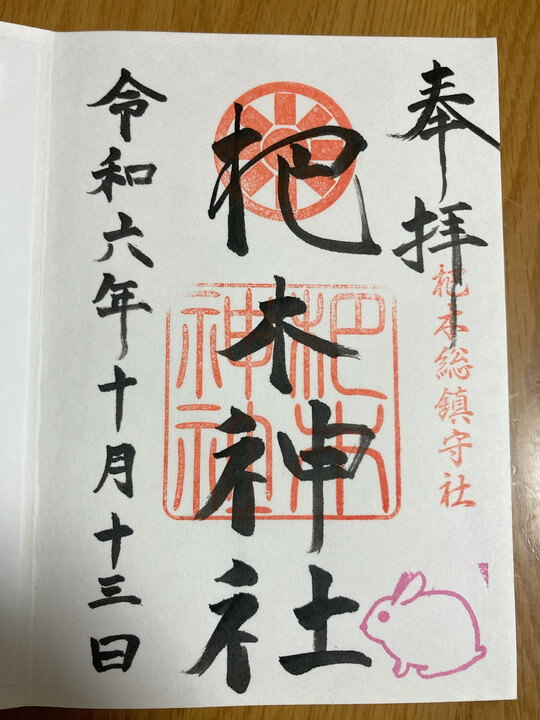 奉拝
杷木総鎮守社
杷木神社
杷木神社
令和六年十月十三日